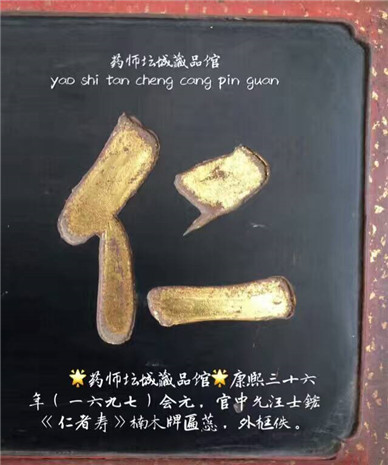 药师坛城藏品馆
yao shi tan cheng cang pin guan
仁
🌟药师坛城藏品馆🌟康熙三十六
年（一六九七）会元，官中允汪士鋐
《仁者寿》楠木牌匾蕊，外框佚。